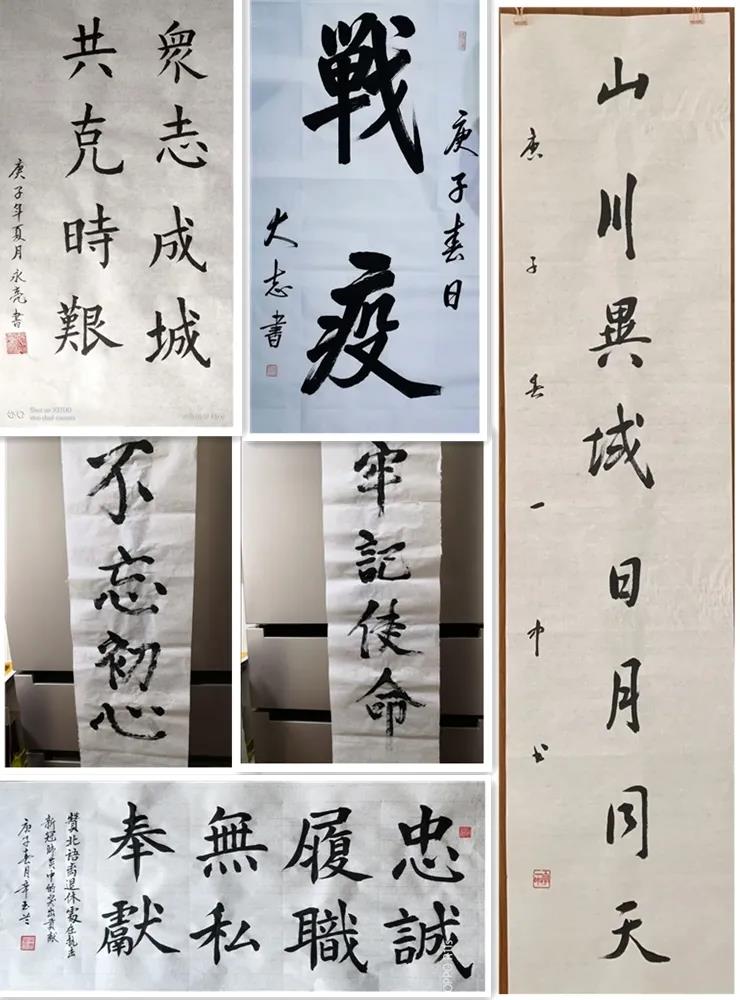 衆志成城
共克時艱
庚子年夏月永亮書
庚子春日
戰疫
大志書
山川異域日月同天
庚子春一中书
不忘初心
牢記使命
忠誠
履職
無私
奉獻
贊北語离退休處在抗击
新冠肺炎中的突出貢獻
庚子春月